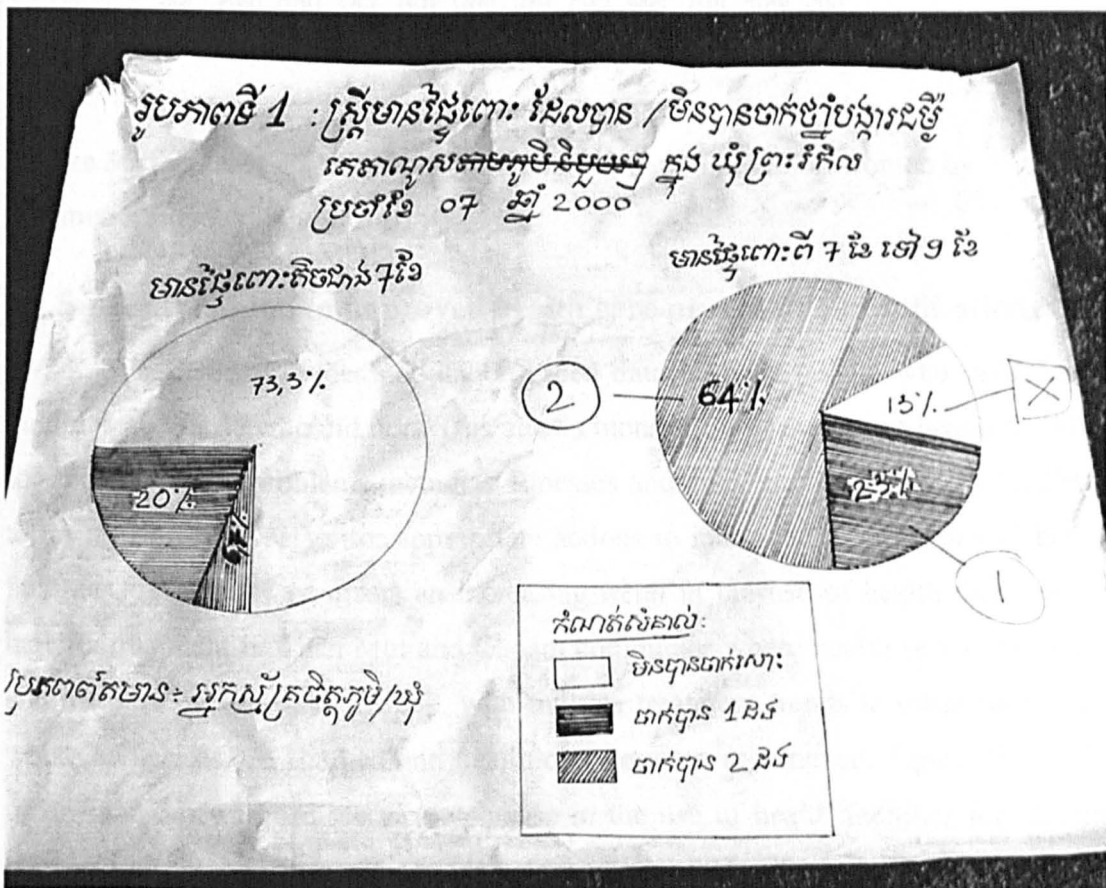 រូបភាពទី 1 : ស្ត្រីមានផ្ទៃពោះ ដែលបាន / មិនបានចាក់ថ្នាំបង្ការជម្ងឺ
តេតាណូសតាមភូមិនិមួយៗ ក្នុង ឃុំព្រះរំកិល
ប្រចាំខែ 07 ឆ្នាំ 2000
មានផ្ទៃពោះតិចជាង 7 ខែ
មានផ្ទៃពោះពី 7 ខែ ទៅ 9 ខែ
73,3%
20%
2
64%
13%
X
23%
1
កំណត់សំគាល់:
មិនបានចាក់សោះ
ចាក់បាន 1 ដង
ចាក់បាន 2 ដង
ប្រភពព័ត៌មាន: អ្នកស្ម័គ្រចិត្តភូមិ/ឃុំ